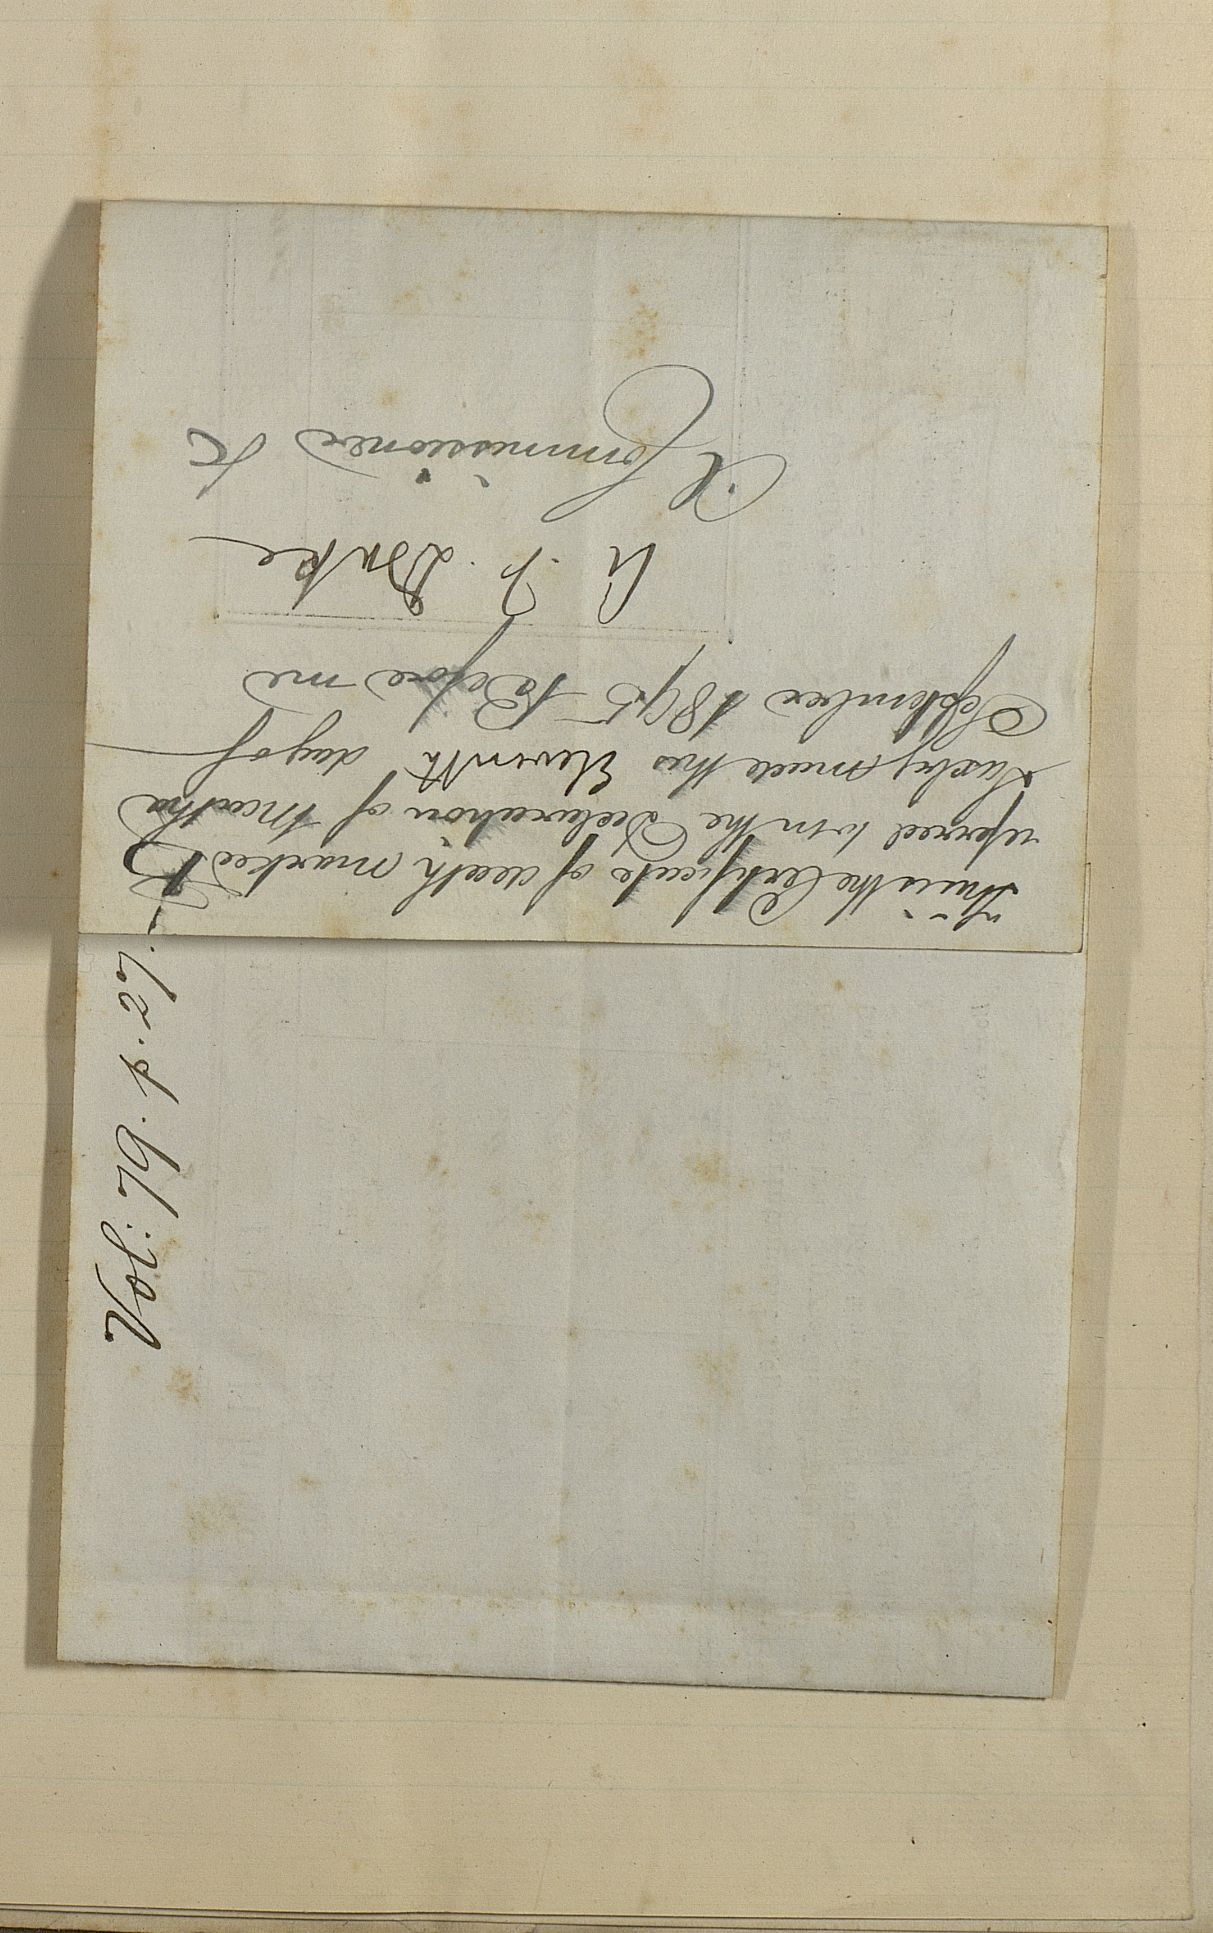 This is the Certificate of death marked B
referred to in the Declaration of Martha
Luxley made this Eleventh day of
September 1895 Before me
W. F. Drake
A Commissioner &c
Vol: 79. p. 27.